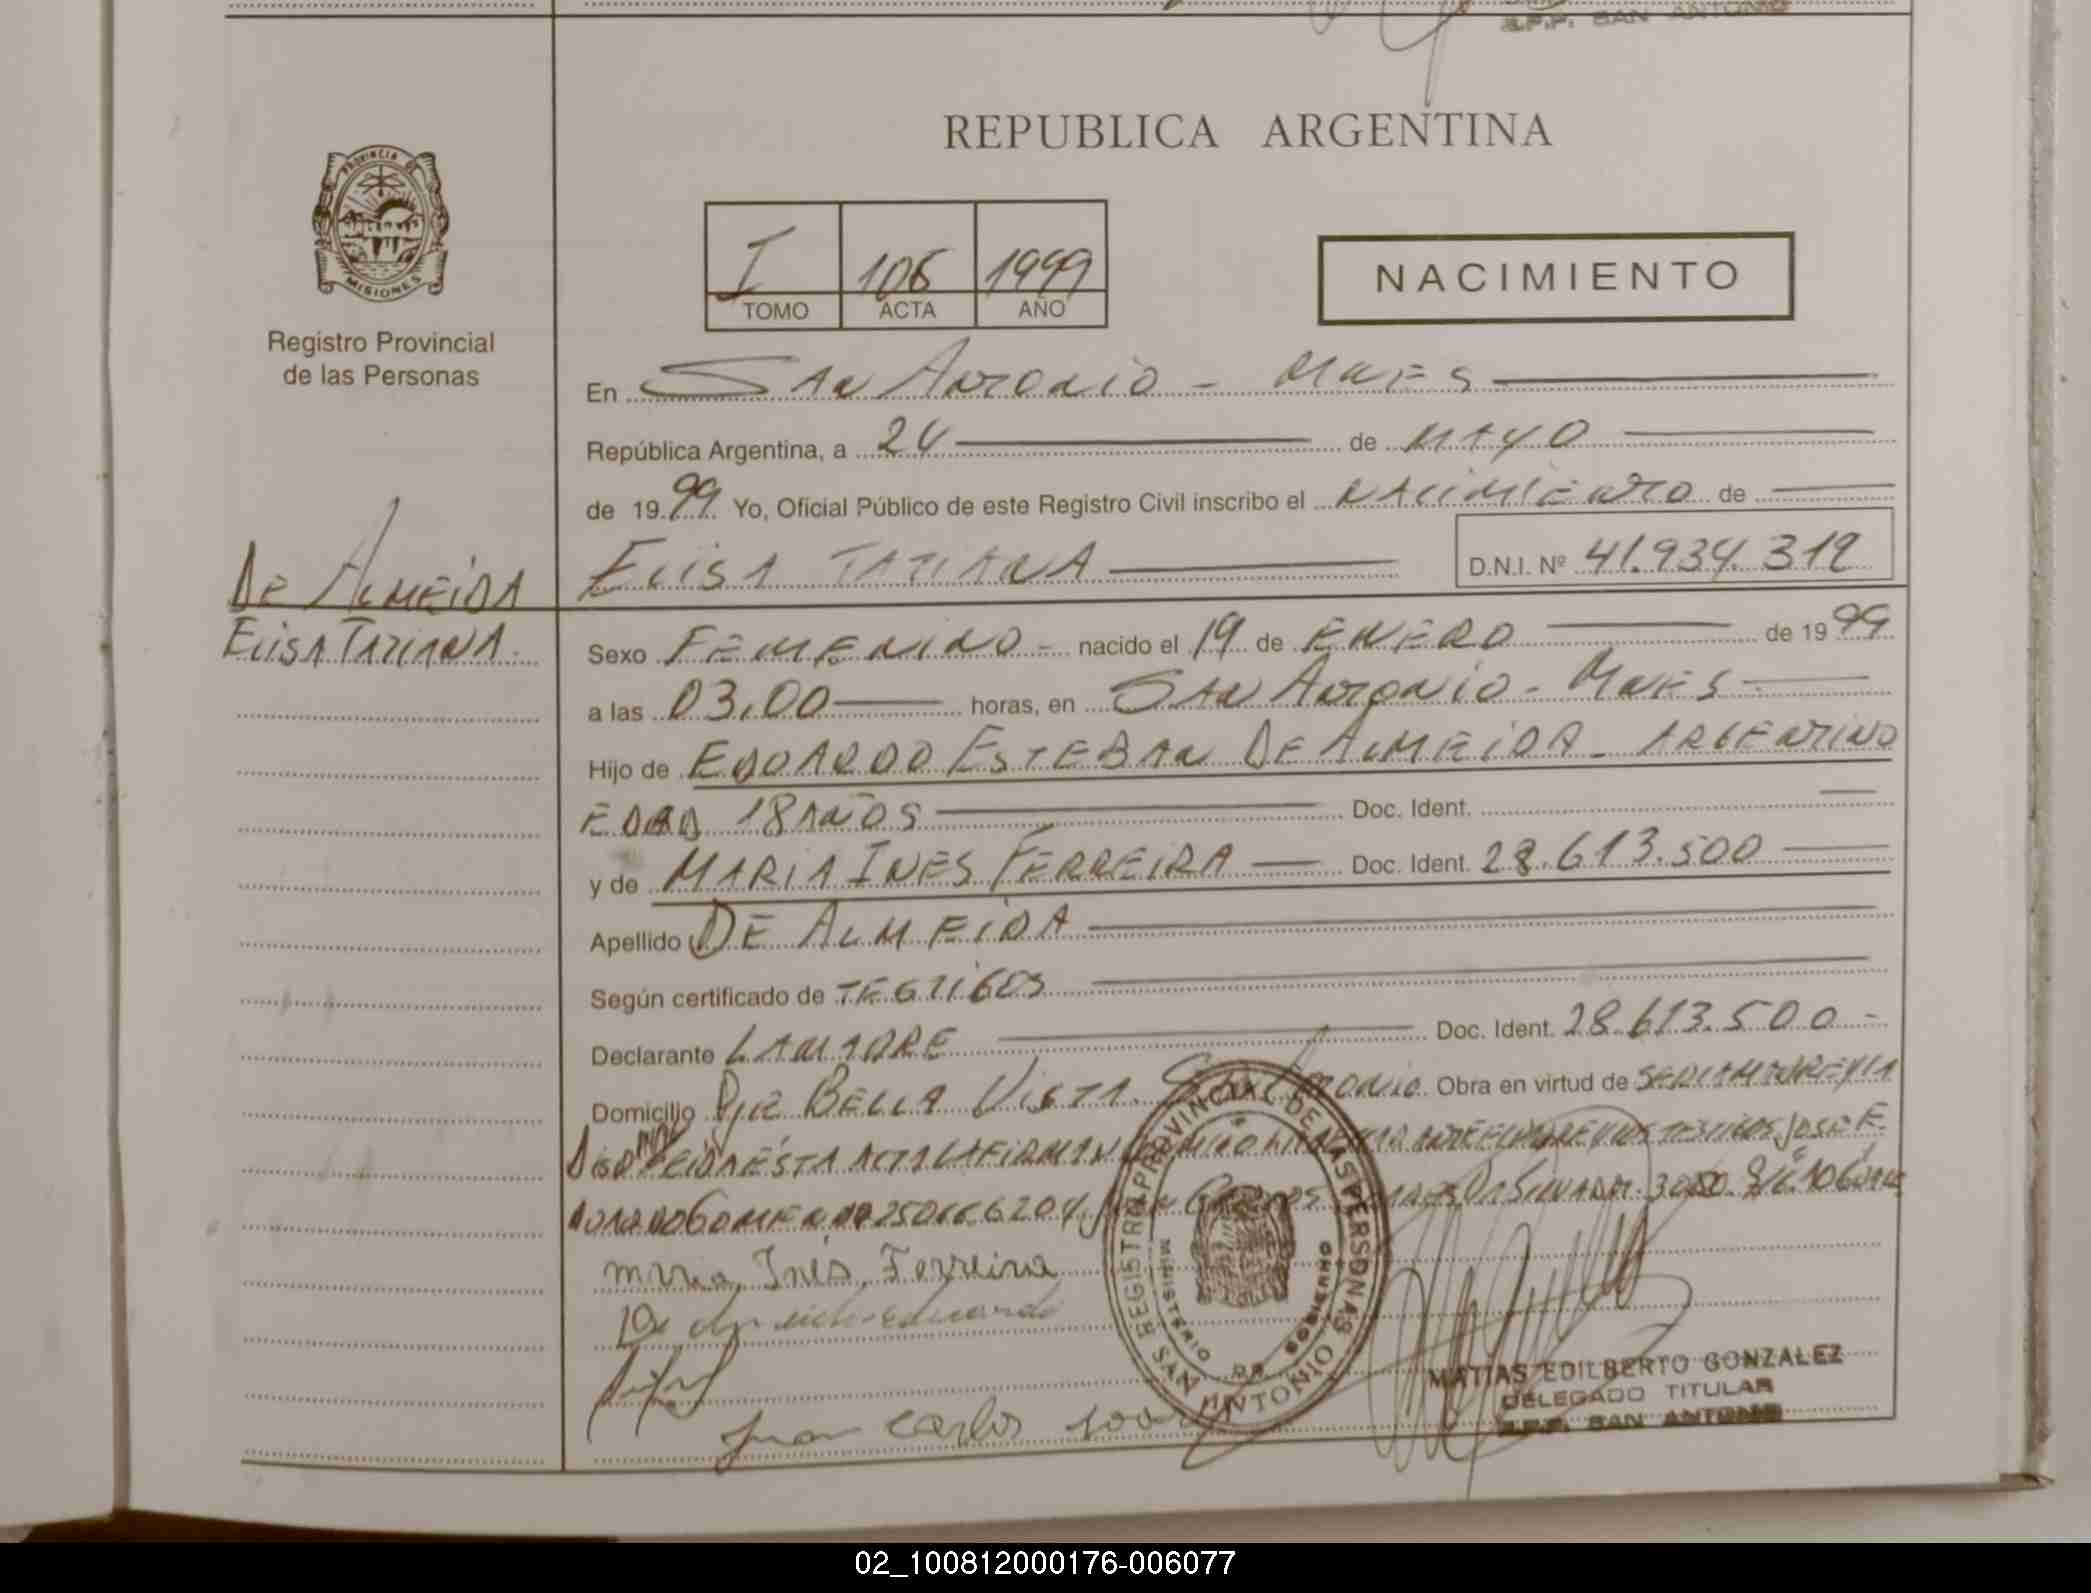 S.F.F. SAN ANTONIO
REPUBLICA ARGENTINA
PROVINCIA DE
MISIONES
Registro Provincial
de las Personas
I 106 1999
TOMO ACTA AÑO
NACIMIENTO
En SAN ANTONIO - MNES
República Argentina, a 24 de MAYO
de 1999 Yo, Oficial Público de este Registro Civil inscribo el NACIMIENTO de
ELISA TATIANA D.N.I. Nº 41.934.312
DE ALMEIDA
ELISA TATIANA
Sexo FEMENINO - nacido el 19 de ENERO de 1999
a las 03,00 horas, en SAN ANTONIO - MNES
Hijo de EDUARDO ESTEBAN DE ALMEIDA - ARGENTINO
EDAD 18 AÑOS Doc. Ident.
y de MARIA INES FERREIRA Doc. Ident. 28.613.500
Apellido DE ALMEIDA
Según certificado de TESTIGOS
Declarante LA MADRE Doc. Ident. 28.613.500 -
Domicilio BELLA VISTA. SAN ANTONIO Obra en virtud de
ESTA ACTA LA FIRMAN TESTIGOS JOSE E.
maria Inés Ferreira
De eduardo
Juan Carlos
REGISTRO PROVINCIAL DE LAS PERSONAS
MINISTERIO DE GOBIERNO
SAN ANTONIO
MATIAS EDILBERTO GONZALEZ
DELEGADO TITULAR
S.F.F. SAN ANTONIO
02_100812000176-006077